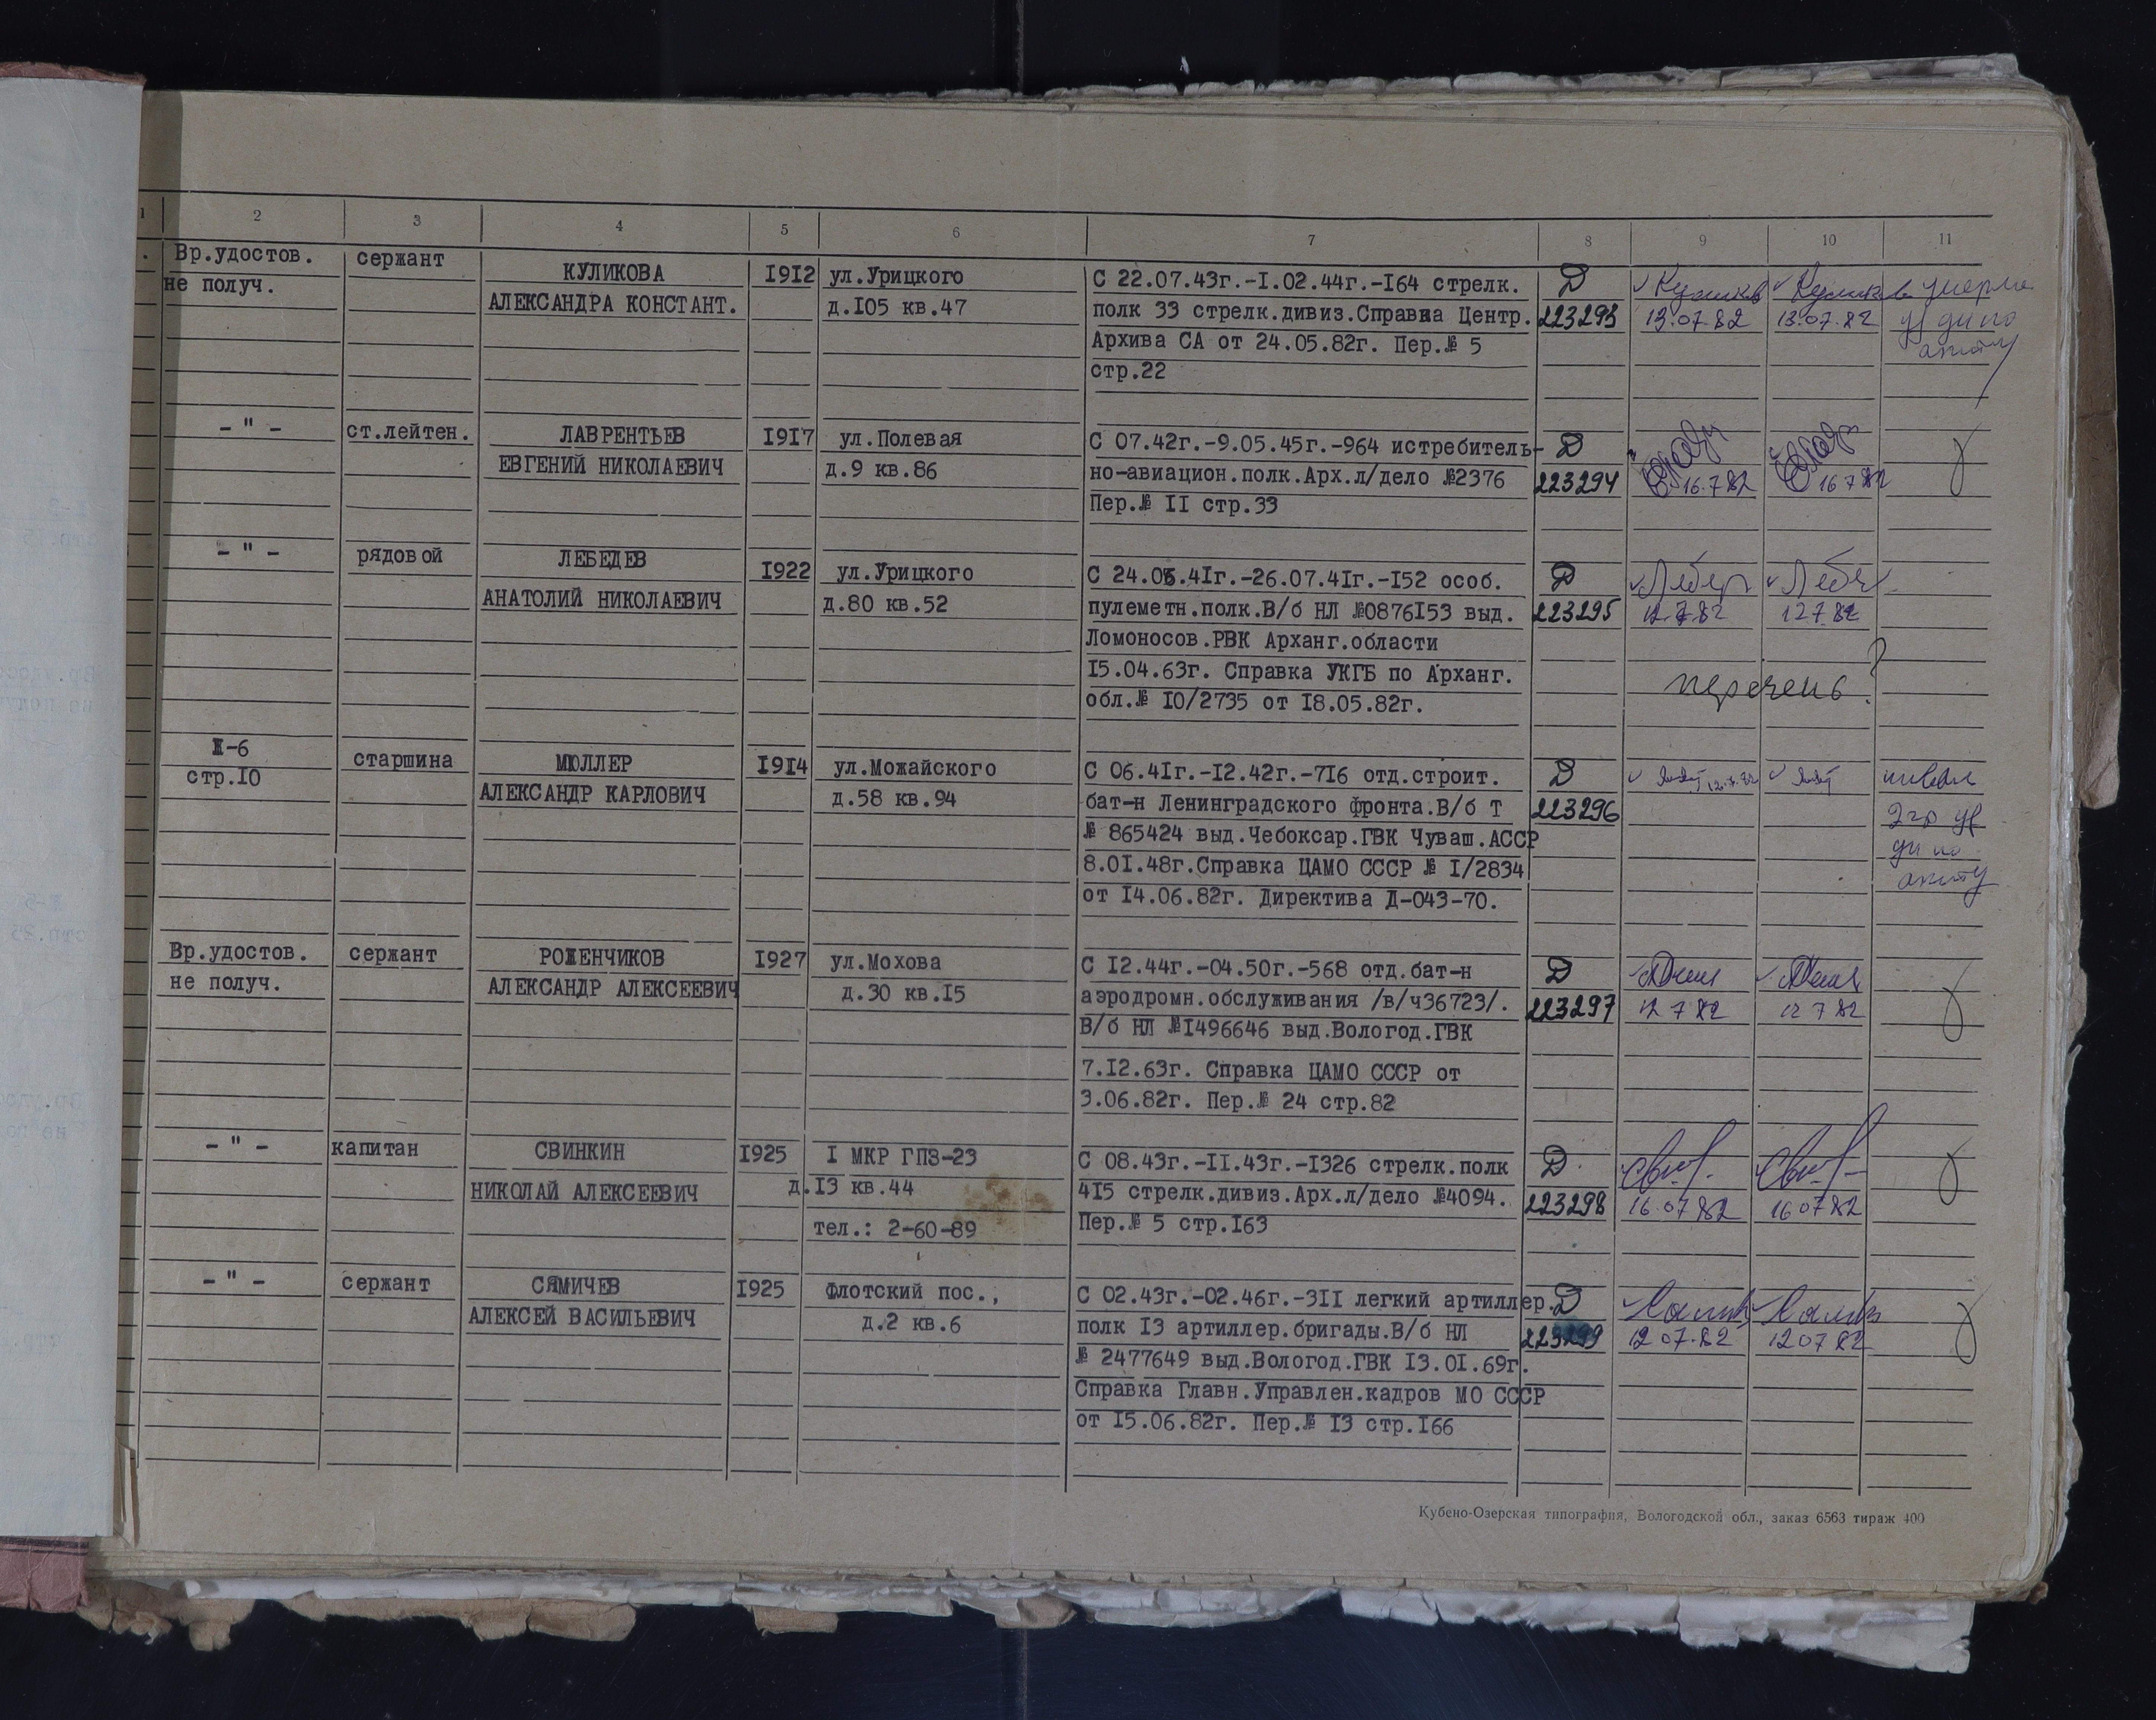 1 2 3 4 5 6 7 8 9 10 11
Вр.удостов. сержант КУЛИКОВА 1912 ул.Урицкого С 22.07.43г.-1.02.44г.-164 стрелк. Д
не получ. АЛЕКСАНДРА КОНСТАНТ. д.105 кв.47 полк 33 стрелк.дивиз.Справка Центр. 223293 13.07.82 13.07.82
Архива СА от 24.05.82г. Пер.№ 5
стр.22
- " - ст.лейтен. ЛАВРЕНТЬЕВ 1917 ул.Полевая С 07.42г.-9.05.45г.-964 истребитель- Д
ЕВГЕНИЙ НИКОЛАЕВИЧ д.9 кв.86 но-авиацион.полк.Арх.л/дело №2376 223294 16.7.82 16 7 82
Пер.№ 11 стр.33
- " - рядовой ЛЕБЕДЕВ 1922 ул.Урицкого С 24.06.41г.-26.07.41г.-152 особ. Д
АНАТОЛИЙ НИКОЛАЕВИЧ д.80 кв.52 пулеметн.полк.В/б НЛ №0876153 выд. 223295 12.7.82 12 7 82
Ломоносов.РВК Арханг.области
15.04.63г. Справка УКГБ по Арханг. перечень ?
обл.№ 10/2735 от 18.05.82г.
Ж-6 старшина МЮЛЛЕР 1914 ул.Можайского С 06.41г.-12.42г.-716 отд.строит. Д
стр.10 АЛЕКСАНДР КАРЛОВИЧ д.58 кв.94 бат-н Ленинградского фронта.В/б Т 223296
№ 865424 выд.Чебоксар.ГВК Чуваш.АССР
8.01.48г.Справка ЦАМО СССР № 1/2834
от 14.06.82г. Директива Д-043-70.
Вр.удостов. сержант РОЖЕНЧИКОВ 1927 ул.Мохова С 12.44г.-04.50г.-568 отд.бат-н Д
не получ. АЛЕКСАНДР АЛЕКСЕЕВИЧ д.30 кв.15 аэродромн.обслуживания /в/ч36723/. 223297 12 7 82 12 7 82
В/б НЛ №1496646 выд.Вологод.ГВК
7.12.63г. Справка ЦАМО СССР от
3.06.82г. Пер.№ 24 стр.82
- " - капитан СВИНКИН 1925 1 МКР ГПЗ-23 С 08.43г.-11.43г.-1326 стрелк.полк Д
НИКОЛАЙ АЛЕКСЕЕВИЧ д.13 кв.44 415 стрелк.дивиз.Арх.л/дело №4094. 223298 16.07.82 16 07 82
тел.: 2-60-89 Пер.№ 5 стр.163
- " - сержант СЯМИЧЕВ 1925 Флотский пос., С 02.43г.-02.46г.-311 легкий артиллер. Д
АЛЕКСЕЙ ВАСИЛЬЕВИЧ д.2 кв.6 полк 13 артиллер.бригады.В/б НЛ 223299 12 07.82 12 07 82
№ 2477649 выд.Вологод.ГВК 13.01.69г.
Справка Главн.Управлен.кадров МО СССР
от 15.06.82г. Пер.№ 13 стр.166
Кубено-Озерская типография, Вологодской обл., заказ 6563 тираж 400